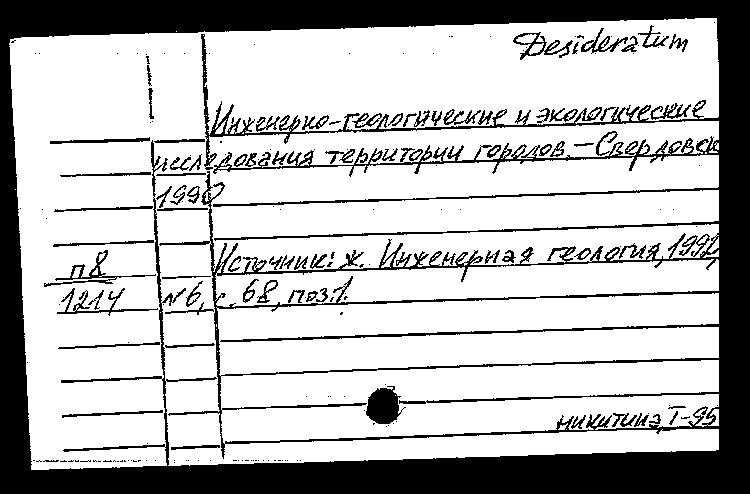 Desideratum
Инженерно-геологические и экологические
исследования территории городов. – Свердовск
1990
п8
Источник: ж. Инженерная геология, 1992,
1214
№6, с. 68, поз. 1.
никитина, I-95